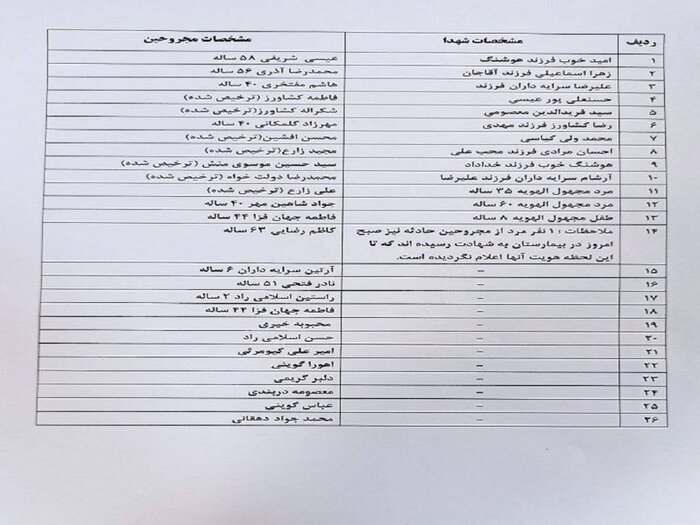 ردیف مشخصات شهدا مشخصات مجروحین
۱ امید خوب فرزند هوشنگ عیسی شریفی ۵۸ ساله
۲ زهرا اسماعیلی فرزند آقاجان محمدرضا آذری ۵۶ ساله
۳ علیرضا سرایه داران فرزند هاشم مفتخری ۴۰ ساله
۴ حسنعلی پور عیسی فاطمه کشاورز (ترخیص شده)
۵ سید فریدالدین معصومی شکراله کشاورز(ترخیص شده)
۶ رضا کشاورز فرزند مهدی مهرزاد گلمکانی ۴۰ ساله
۷ محمد ولی کیاسی محسن افشین(ترخیص شده)
۸ احسان مرادی فرزند محب علی مجید زارع(ترخیص شده)
۹ هوشنگ خوب فرزند خداداد سید حسین موسوی منش (ترخیص شده)
۱۰ آرشام سرایه داران فرزند علیرضا محمدرضا دولت خواه (ترخیص شده)
۱۱ مرد مجهول الهویه ۳۵ ساله علی زارع (ترخیص شده)
۱۲ مرد مجهول الهویه ۶۰ ساله جواد شاهین مهر ۴۰ ساله
۱۳ طفل مجهول الهویه ۸ ساله فاطمه جهان فزا ۴۴ ساله
۱۴ ملاحظات : ۱ نفر مرد از مجروحین حادثه نیز صبح کاظم رضایی ۶۳ ساله
امروز در بیمارستان به شهادت رسیده اند که تا
این لحظه هویت آنها اعلام نگردیده است.
۱۵ – آرتین سرایه داران ۶ ساله
۱۶ – نادر فتحی ۵۱ ساله
۱۷ – راستین اسلامی راد ۲ ساله
۱۸ – فاطمه جهان فزا ۴۴ ساله
۱۹ – محبوبه خیری
۲۰ – حسن اسلامی راد
۲۱ – امیر علی کیومرثی
۲۲ – اهورا گوینی
۲۳ – دلبر کریمی
۲۴ – معصومه دربندی
۲۵ – عباس گوینی
۲۶ – محمد جواد دهقانی